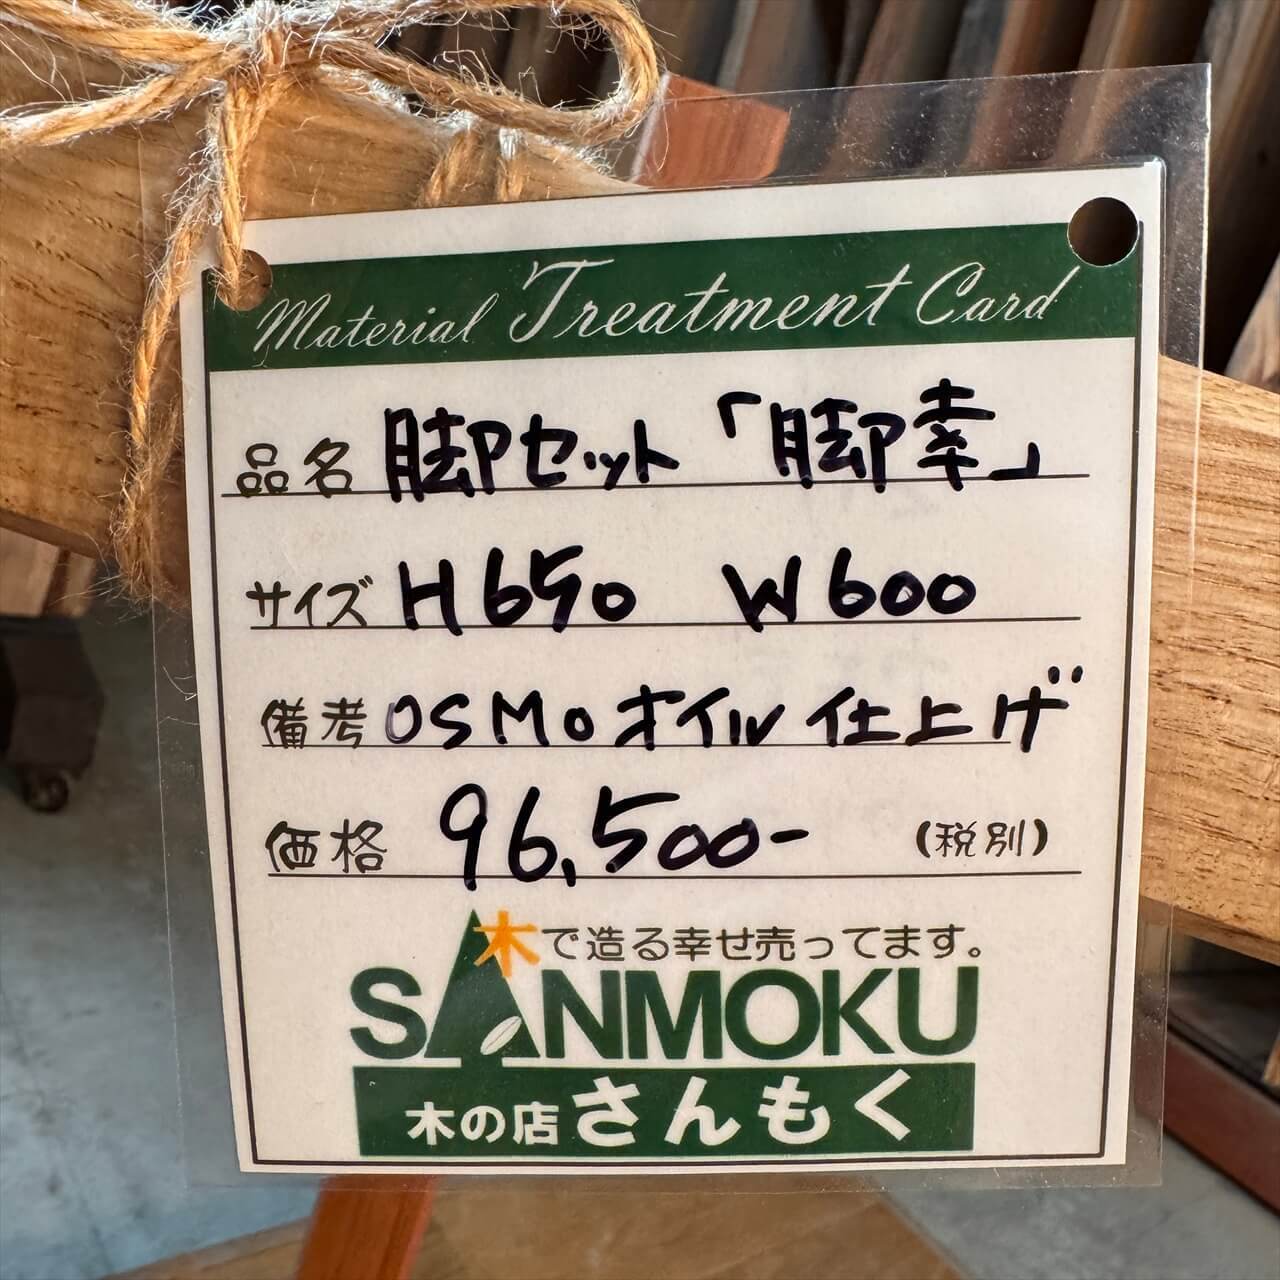 Material Treatment Card
品名 脚セット「脚幸」
サイズ H650 W600
備考 OSMOオイル仕上げ
価格 96,500- (税別)
木で造る幸せ売ってます。
SANMOKU
木の店さんもく